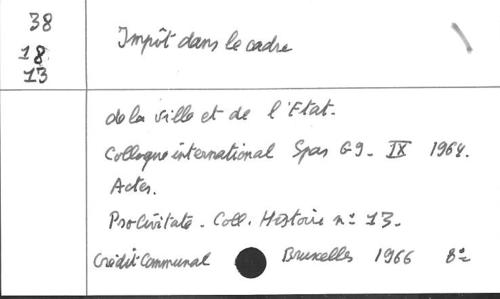 38
18
13
Impôt dans le cadre
de la ville et de l'Etat.
Colloque international Spa 6-9- IX 1964.
Actes.
Pro Civitate. Coll. Histoire n° 13.
Crédit Communal Bruxelles 1966 8°